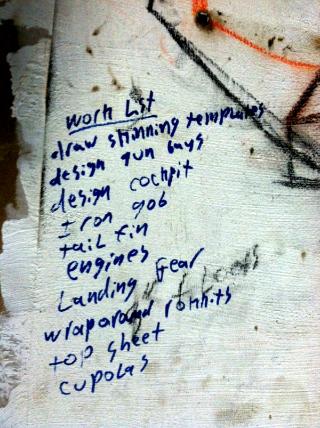 work List
draw skinning templates
design gun bays
design cockpit
Iron gob
tail fin
engines
Landing gear
wraparound ronnits
top sheet
cupolas